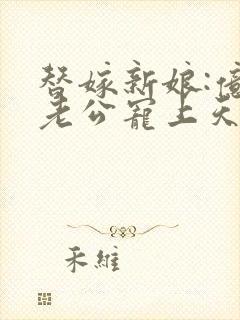 替嫁新娘:億
老公寵上天
禾維